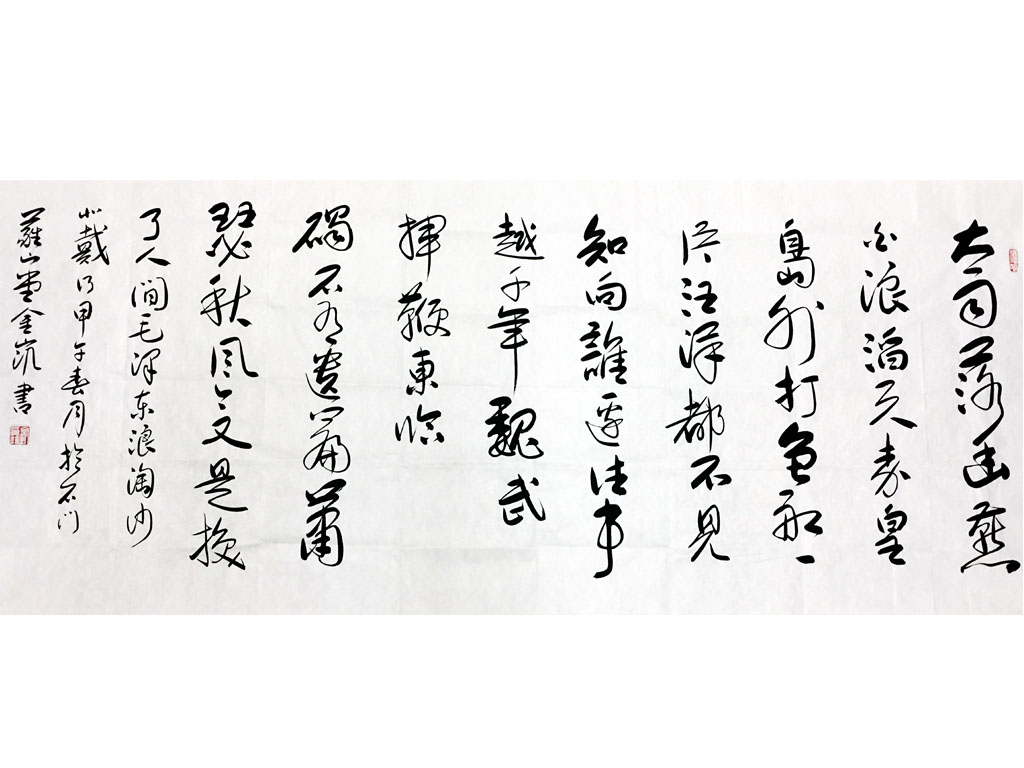 大雨落幽燕
白浪滔天秦皇
島外打魚船一
片汪洋都不見
知向誰邊往事
越千年魏武
揮鞭東臨
碣石有遺篇蕭
瑟秋風今又是換
了人間毛澤东浪淘沙
北戴河甲午春月於石门
山堂金書